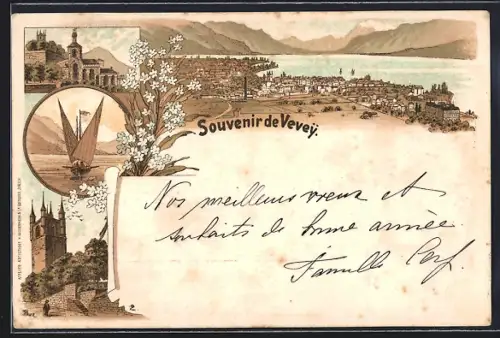 Souvenir de Vevey.
Nos meilleurs vœux et
souhaits de bonne année.
Famille